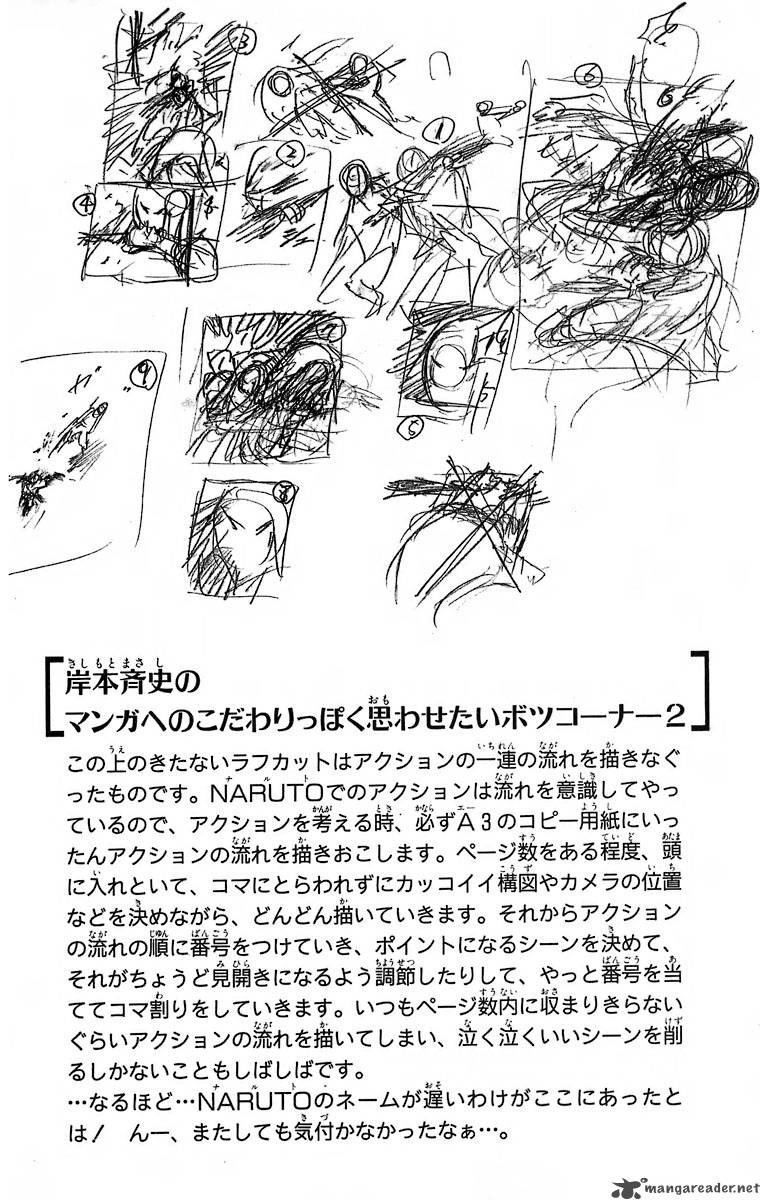 3
1
6
6
2
4
1
7
9
ガ
5
8
岸本斉史の
マンガへのこだわりっぽく思わせたいボツコーナー2
この上のきたないラフカットはアクションの一連の流れを描きなぐ
ったものです。NARUTOでのアクションは流れを意識してやっ
ているので、アクションを考える時、必ずA3のコピー用紙にいっ
たんアクションの流れを描きおこします。ページ数をある程度、頭
に入れといて、コマにとらわれずにカッコイイ構図やカメラの位置
などを決めながら、どんどん描いていきます。それからアクション
の流れの順に番号をつけていき、ポイントになるシーンを決めて、
それがちょうど見開きになるよう調節したりして、やっと番号を当
ててコマ割りをしていきます。いつもページ数内に収まりきらない
ぐらいアクションの流れを描いてしまい、泣く泣くいいシーンを削
るしかないこともしばしばです。
…なるほど…NARUTOのネームが遅いわけがここにあったと
は! んー、またしても気付かなかったなぁ…。
mangareader.net